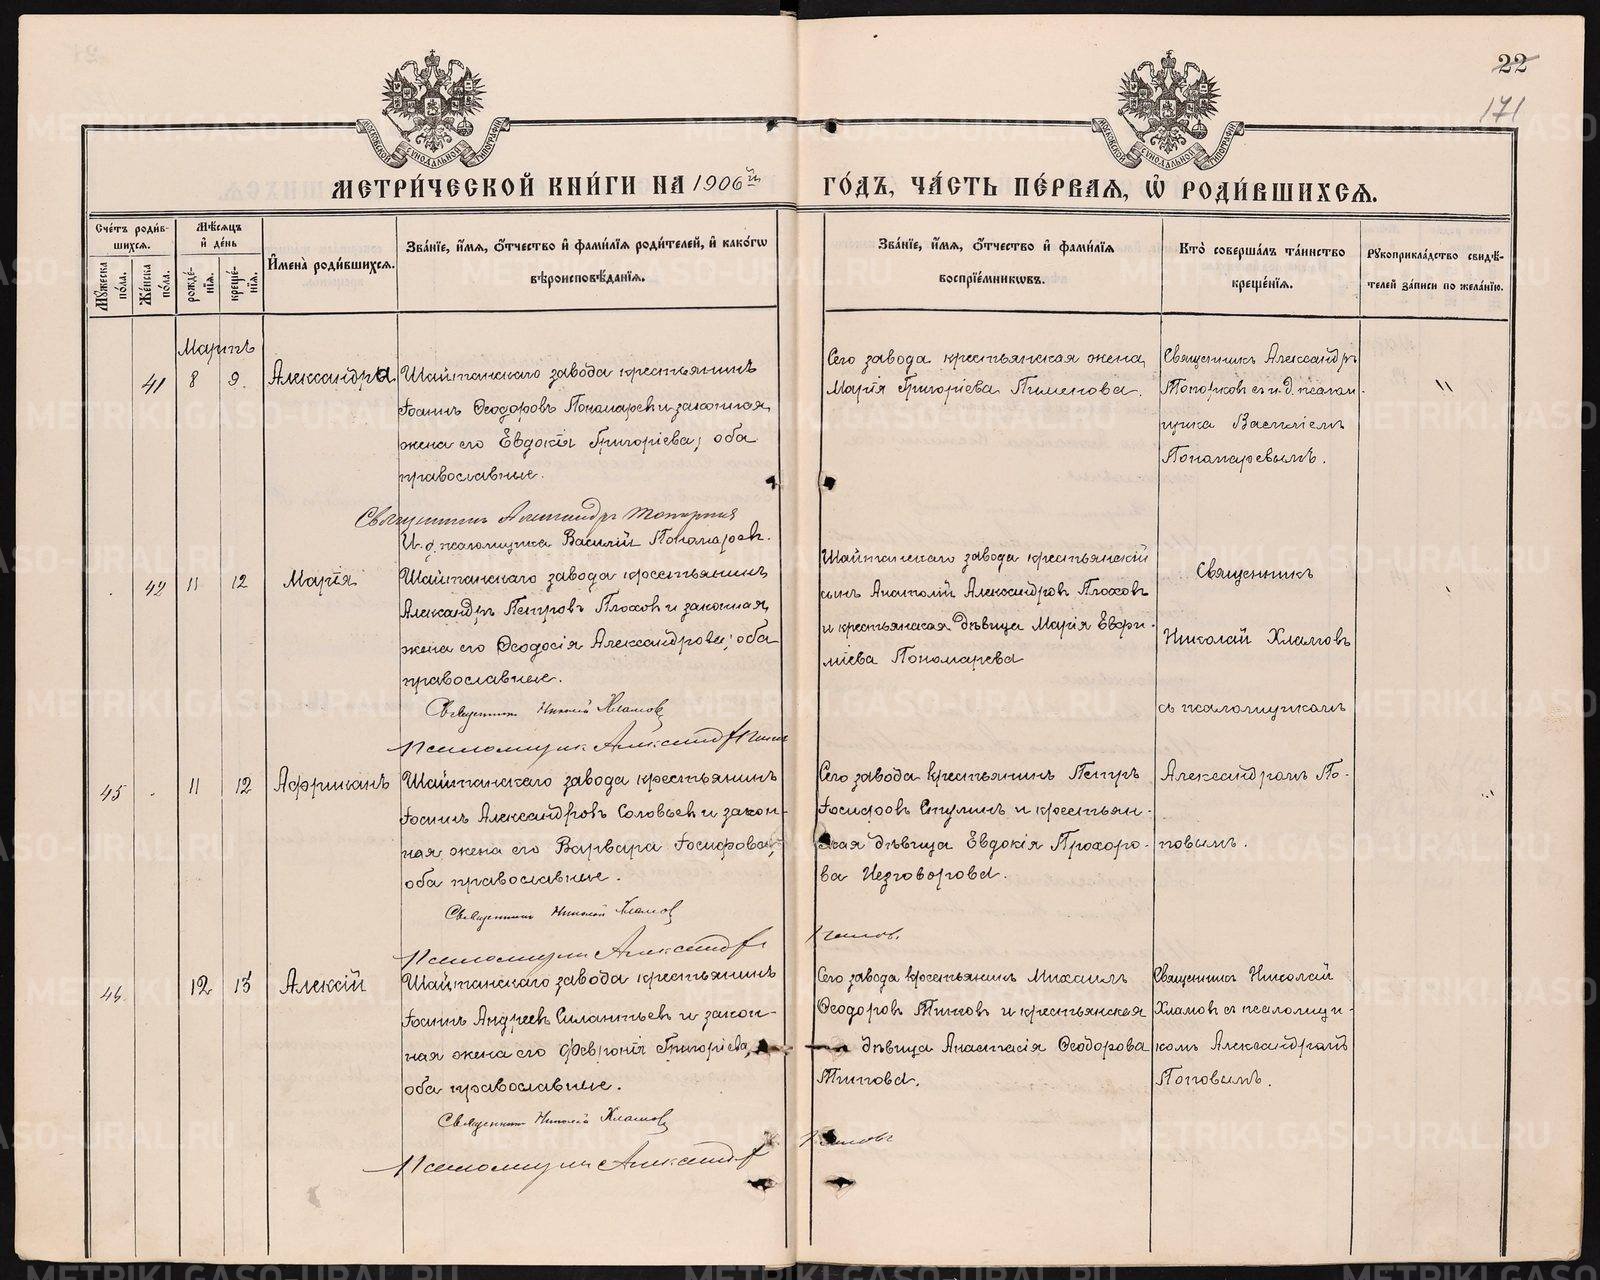 22
171
МОСКОВСКОЙ СѴНОДАЛЬНОЙ ТИПОГРАФІИ
МОСКОВСКОЙ СѴНОДАЛЬНОЙ ТИПОГРАФІИ
МЕТРИ́ЧЕСКОЙ КНИ́ГИ НА 1906й ГО́ДЪ, ЧА́СТЬ ПЕ́РВАѦ, Ѡ РОДИ́ВШИХСѦ.
Сче́тъ роди́в-
шихсѧ.
Мꙋ́жеска по́ла.
Же́нска по́ла.
Мѣ́сѧцъ
и҆ де́нь
рожде́-
нїѧ.
креще́-
нїѧ.
И҆мена̀ роди́вшихсѧ.
Зва́нїе, и҆́мѧ, ѻ҆́тчество и҆ фами́лїѧ роди́телей, и҆ како́гѡ
вѣроисповѣ́данїѧ.
Зва́нїе, и҆́мѧ, ѻ҆́тчество и҆ фами́лїѧ
воспрїе́мникѡвъ.
Кто̀ соверша́лъ та́инство
креще́нїѧ.
Рꙋкоприкла́дство свидѣ́-
телей за́писи по жела́нїю.
Мартъ
41 8 9. Александра
Шайтанскаго завода крестьянинъ
Іоаннъ Ѳеодоровъ Пономаревъ и законная
жена его Евдокія Григоріева; оба
православные.
Священникъ Александръ Топорковъ
И. д. псаломщика Василій Пономаревъ.
Сего завода крестьянская жена
Марія Григоріева Пименова.
Священникъ Александръ
Топорковъ съ и. д. псалом-
щика Василіемъ
Пономаревымъ.
42 11 12 Марія
Шайтанскаго завода крестьянинъ
Александръ Петровъ Плоховъ и законная
жена его Ѳеодосія Александрова; оба
православные.
Священникъ Николай Хламовъ
Псаломщикъ Александръ Поповъ
Шайтанскаго завода крестьянскій
сынъ Анатолій Александровъ Плоховъ
и крестьянская дѣвица Марія Евфи-
міева Пономарева
Священникъ
Николай Хламовъ
съ псаломщикомъ
45 - 11 12 Африканъ
Шайтанскаго завода крестьянинъ
Іоаннъ Александровъ Соловьевъ и закон-
ная жена его Варвара Іосифова;
оба православные.
Священникъ Николай Хламовъ
Псаломщикъ Александръ Поповъ
Сего завода крестьянинъ Петръ
Іосифовъ Ступинъ и крестьян-
ская дѣвица Евдокія Прохоро-
ва Изговорова.
Александромъ По-
повымъ.
46. 12 15 Алексій
Шайтанскаго завода крестьянинъ
Іоаннъ Андреевъ Силантьевъ и закон-
ная жена его Февронія Григоріева,
оба православные.
Священникъ Николай Хламовъ
Псаломщикъ Александръ Поповъ
Сего завода крестьянинъ Михаилъ
Ѳеодоровъ Титовъ и крестьянская
дѣвица Анастасія Ѳеодорова
Титова.
Священникъ Николай
Хламовъ съ псаломщи-
комъ Александромъ
Поповымъ.
METRIKI.GASO-URAL.RU